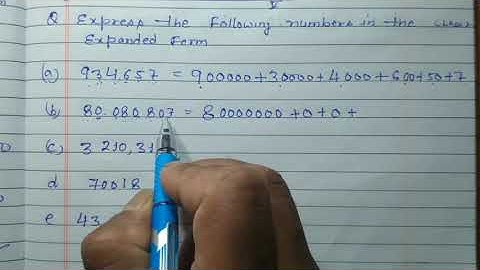 Q Express the following numbers in the
Expanded Form
(a) 934,657 = 900000+30000+4000+600+50+7
(b) 80,080,807 = 80000000+0+0+
(c) 3210,31
d 70018
e 43